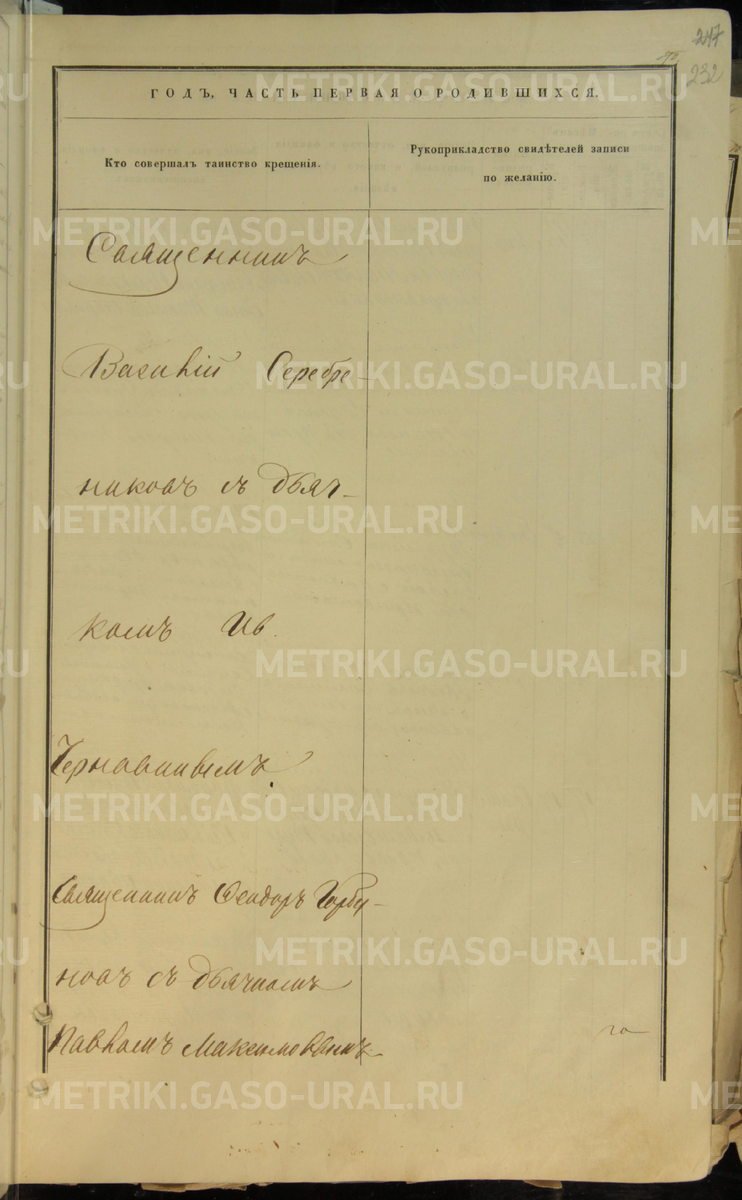 247
232
ГОДЪ, ЧАСТЬ ПЕРВАЯ О РОДИВШИХСЯ.
Кто совершалъ таинство крещенія.
Рукоприкладство свидѣтелей записи
по желанію.
Священникъ
Василій Серебре-
никовъ съ дьяч-
комъ Ив.
Чернавинымъ
Священникъ Феодоръ Горбу-
новъ съ дьячкомъ
Павломъ Максимовымъ
го
METRIKI.GASO-URAL.RU